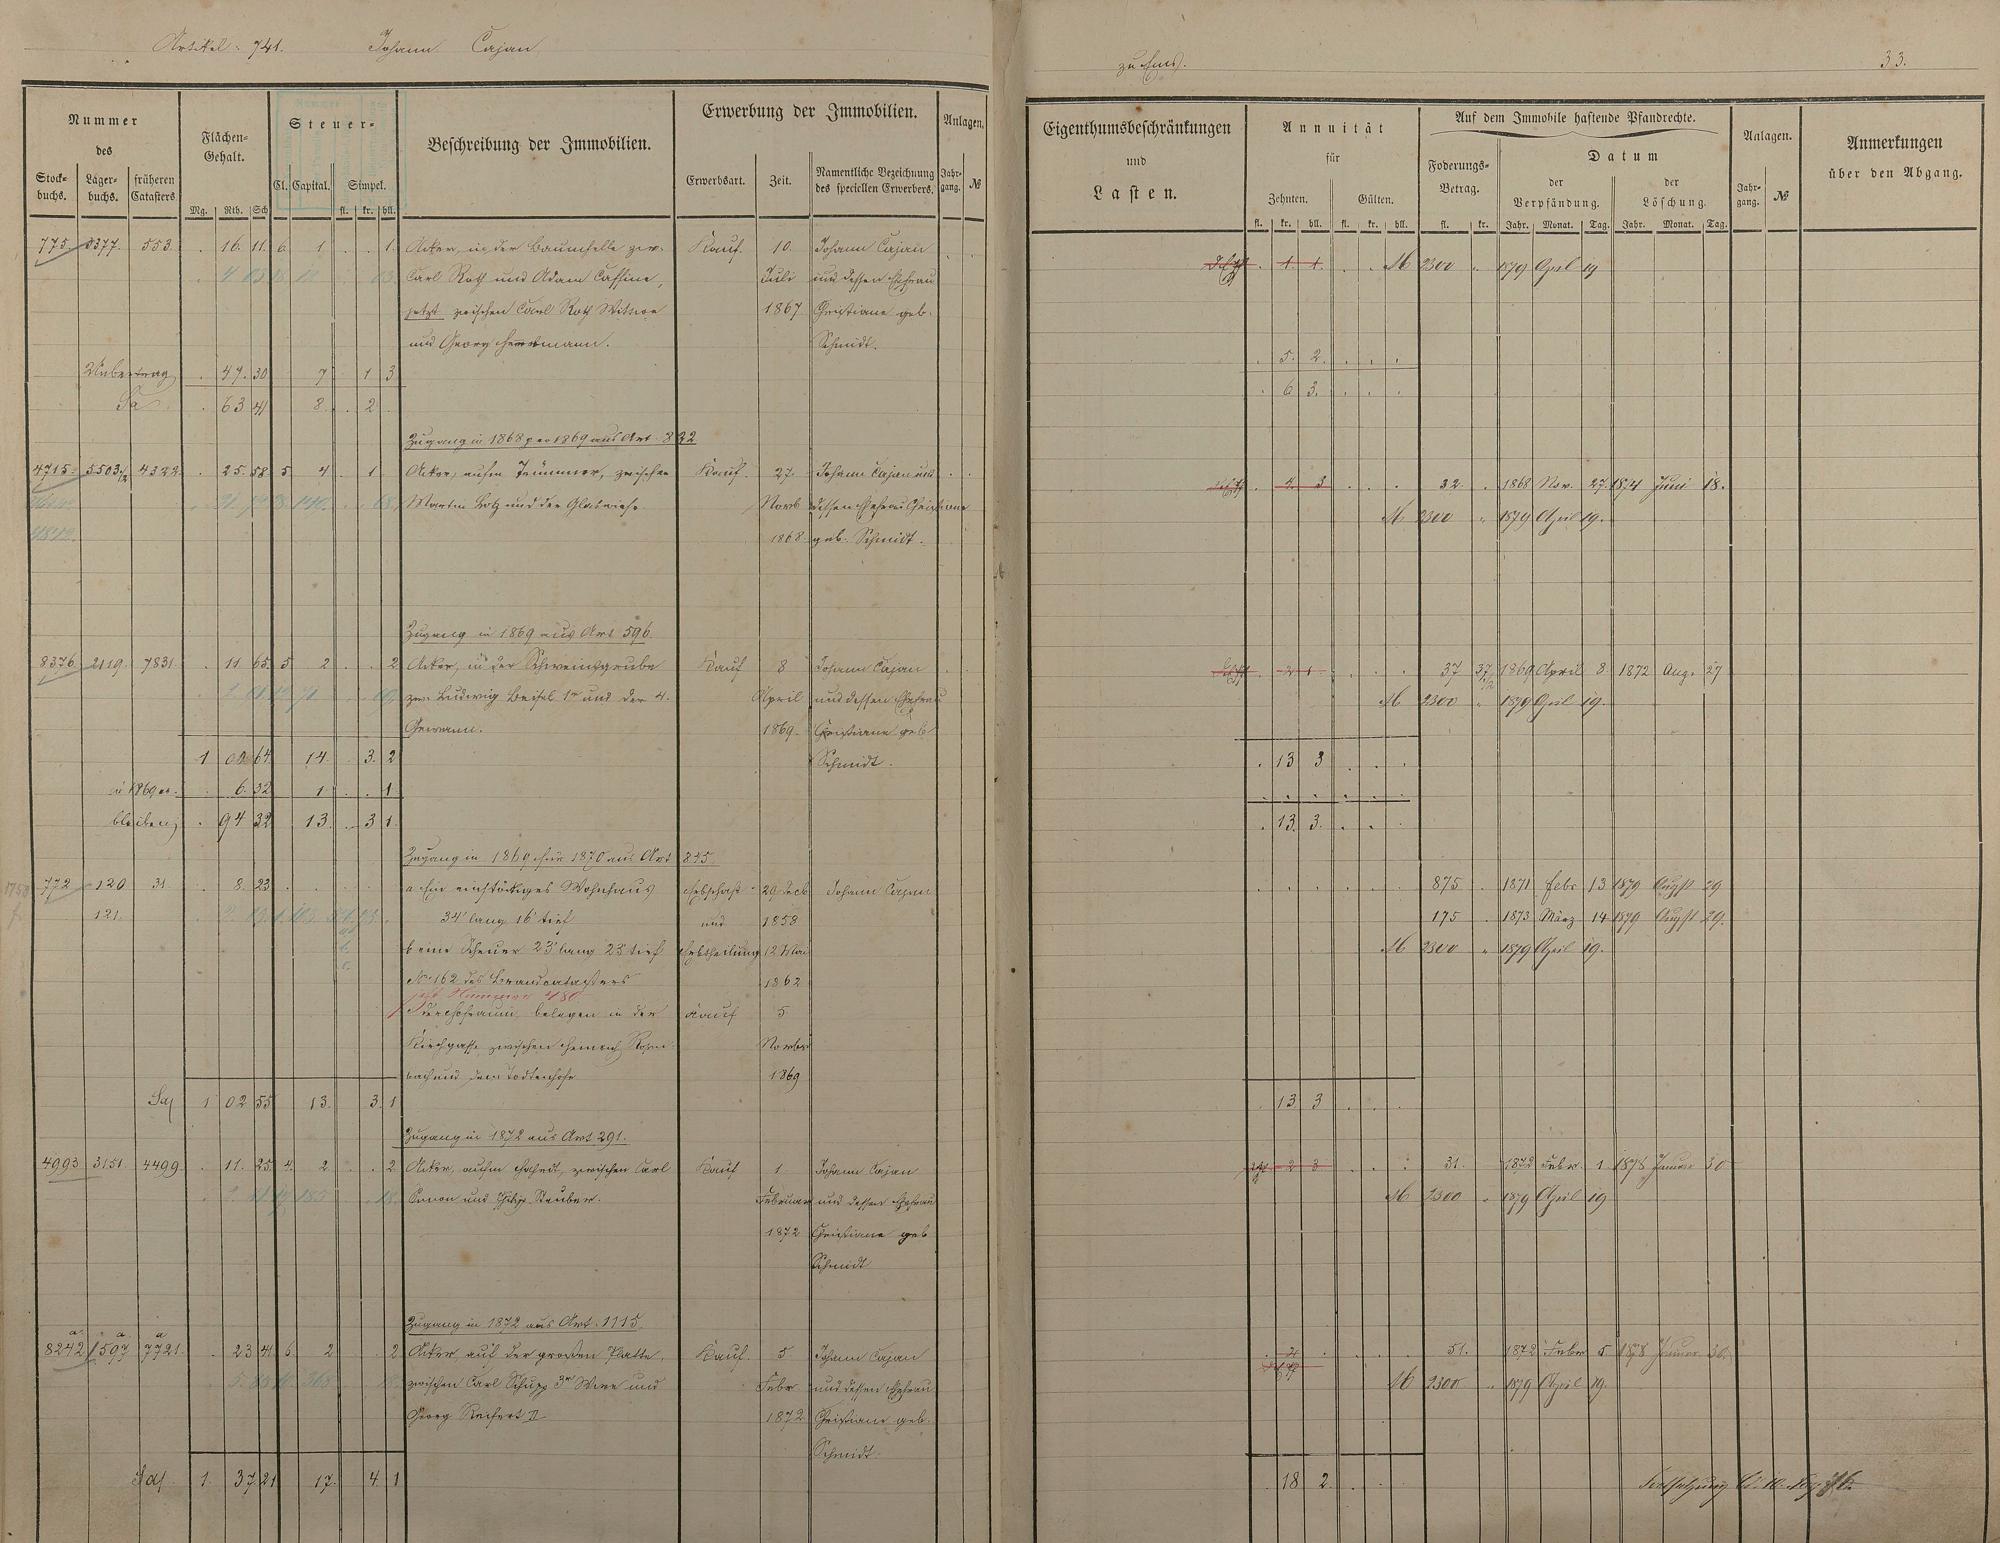 Artikel 741. Johann Cajan
zu Ems. 33.
Nummer
des
Stock-
buchs.
Lager-
buchs.
früheren
Catasters
Flächen-
Gehalt.
Mg. Rth. Sch
Steuer-
Cl. Capital. Simpel.
fl. kr. hll.
Beschreibung der Immobilien.
Erwerbung der Immobilien.
Erwerbsart. Zeit. Namentliche Bezeichnung
des speciellen Erwerbers.
Anlagen.
Jahr-
gang. №
Eigenthumsbeschränkungen
und
Lasten.
Annuität
für
Zehnten. Gülten.
fl. kr. hll. fl. kr. hll.
Auf dem Immobile haftende Pfandrechte.
Foderungs-
Betrag.
fl. kr.
Datum
der
Verpfändung.
der
Löschung.
Jahr. Monat. Tag. Jahr. Monat. Tag.
Anlagen.
Jahr-
gang. №
Anmerkungen
über den Abgang.
775. 8377. 553. . 16. 11. 6. 1 . . 1. Acker, in der Baumhelle zw. Kauf. 10. Johann Cajan
1. 1. M 2300 " 1879 April 19
Carl Roth und Adam Caffine, Juli und dessen Ehefrau
jetzt zwischen Carl Roth Wittwe 1867. Christiane geb.
und Georg Schmidt.
. 5. 2. . . .
. 47. 30 7 1 3
. 6 3. . . .
Sa . 63 41 8. . 2.
Zugang in 1868 pro 1869 aus Art. 822
4715. 5503 1/2 4322. . 25. 58. 5 4 . 1. Acker, aufm Trümmer, zwischen Kauf. 27. Johann Cajan und
4 3 32. . 1868 Nov. 27. 1874 Juni 18.
Martin Botz und der Glaswiese Novb dessen Ehefrau Christiane
M 2300 " 1879 April 19.
1868. geb. Schmidt.
Zugang in 1869 aus Art. 596.
8376. 2119. 7831. . 11 65. 5 2 . . 2 Acker, in der Schweinsgrube Kauf 8 Johann Cajan
2 1 37 37 1/2 1869 April 8 1872 Aug. 27
zw. Ludwig Beisel 1r und der 4. April und dessen Ehefrau
M 2300 " 1879 April 19.
Gewann. 1869. Christiane geb.
1 00 64 14. . 3. 2 Schmidt.
. 13 3 . . .
in 1869 . 6. 32 1 . . 1
bleiben . 94 32 13. . 3 1
. 13. 3. . .
Zugang in 1869 für 1870 aus Art 845.
772 120 31 . 8. 23 a Ein einstöckiges Wohnhaus Erbschaft 29 Decb Johann Cajan
875 . 1871 Febr 13 1879 August 29
121. 34' lang 16' tief und 1858
175 . 1873 März 14 1879 August 29.
b eine Scheuer 23' lang 23' tief Erbtheilung 12 Mai
M 2300 " 1879 April 19.
No. 162 des Brandcatasters 1862
jetzt Nummer 480
c der Hofraum, belegen in der Kauf 5
Kirchgasse, zwischen Heinrich Novbr
bach und dem Todtenhofe 1869
Sa 1 02 55 13. 3. 1
. 13 3 . . .
Zugang in 1872 aus Art 291.
4993 3151. 4499. . 11. 25. 4. 2 . . 2 Acker, aufm zwischen Carl Kauf 1. Johann Cajan
2 3 31. 1872 Febr. 1. 1878 Januar 30
und Philipp Steuber. Februar und dessen Ehefrau
M 2300 " 1879 April 19
1872 Christiane geb
Schmidt
Zugang in 1872 aus Art. 1115.
8242 a 1597 a 7721 a . 23 41 6. 2 . . 2 Acker auf der großen Platte, Kauf. 5 Johann Cajan
51. 1872 Febr 5 1878 Januar 30.
zwischen Carl Schupp 3r Wwe und Febr und dessen Ehefrau
M 2300 " 1879 April 19.
Georg Reifert II 1872 Christiane geb.
Schmidt.
Sa 1. 37. 21 17. 4. 1
. 18 2. . . .
Fortsetzung Bd. 10.